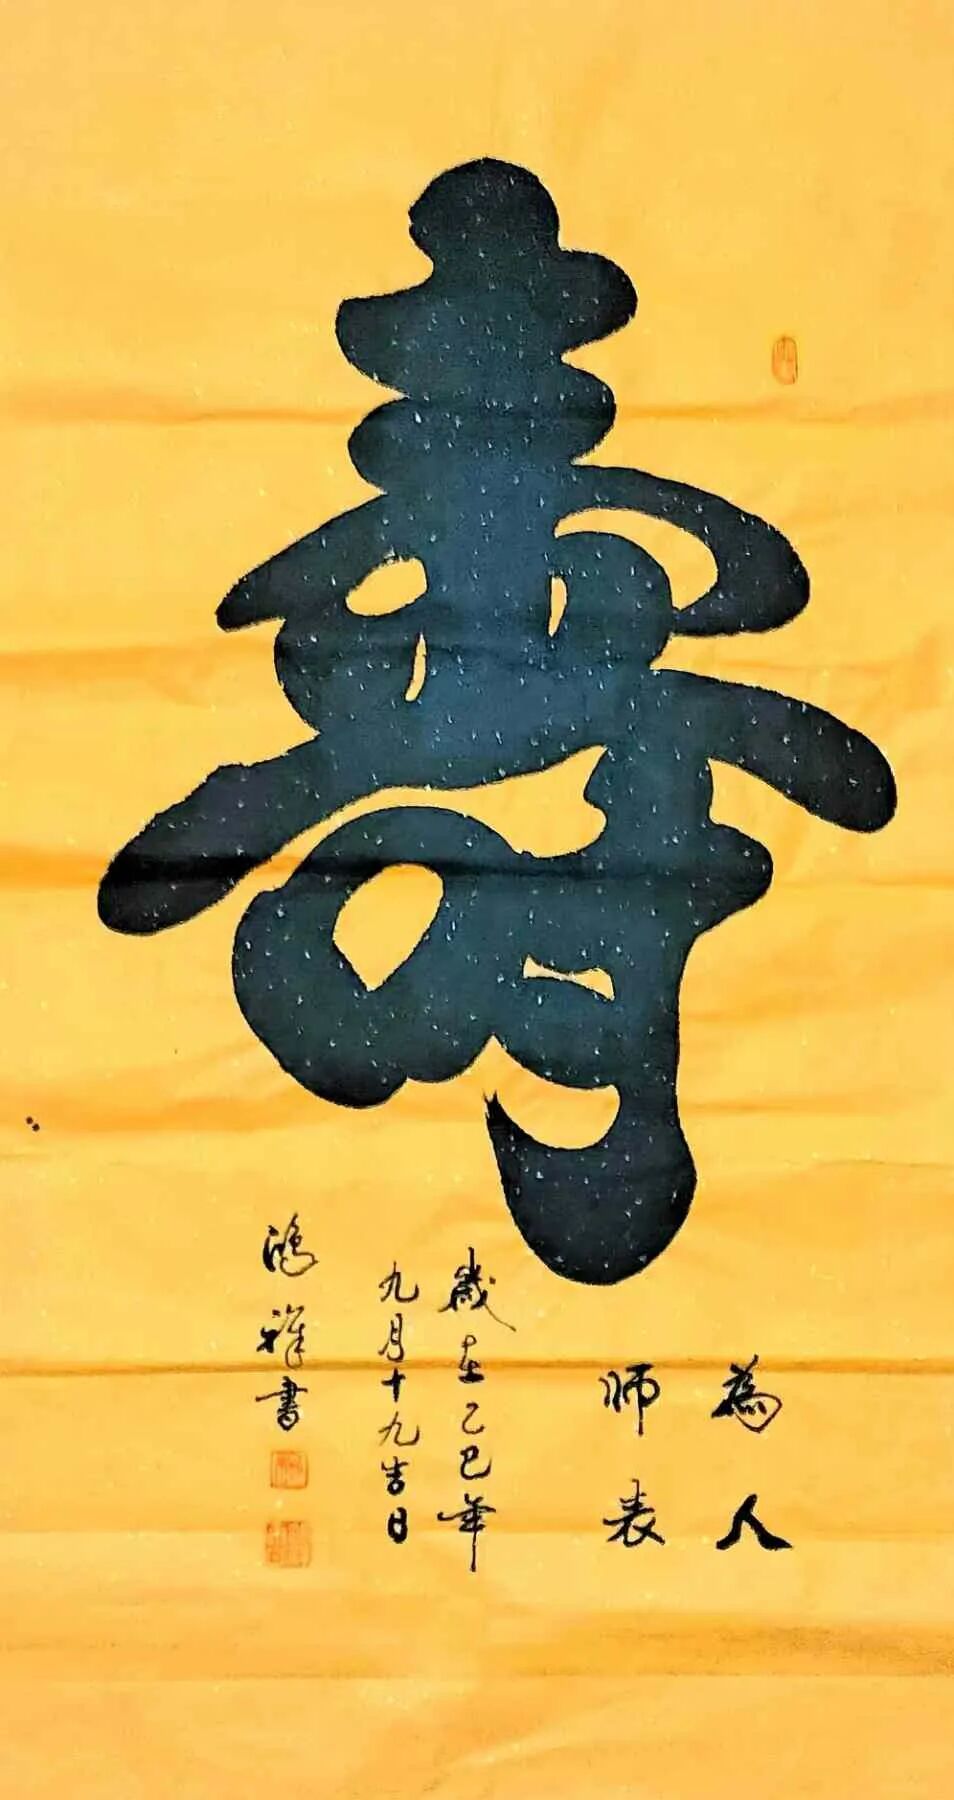 壽
為人
師表
歲在乙巳年
九月十九吉日
鴻祥書